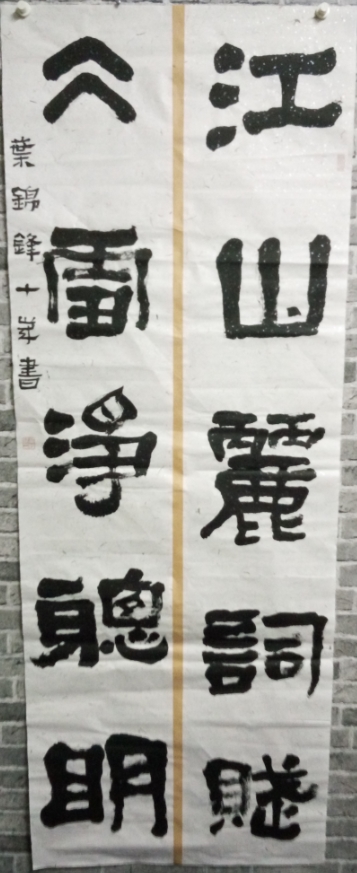 江山麗詞賦
仌雪淨聰眀
葉錦鋒十岁書